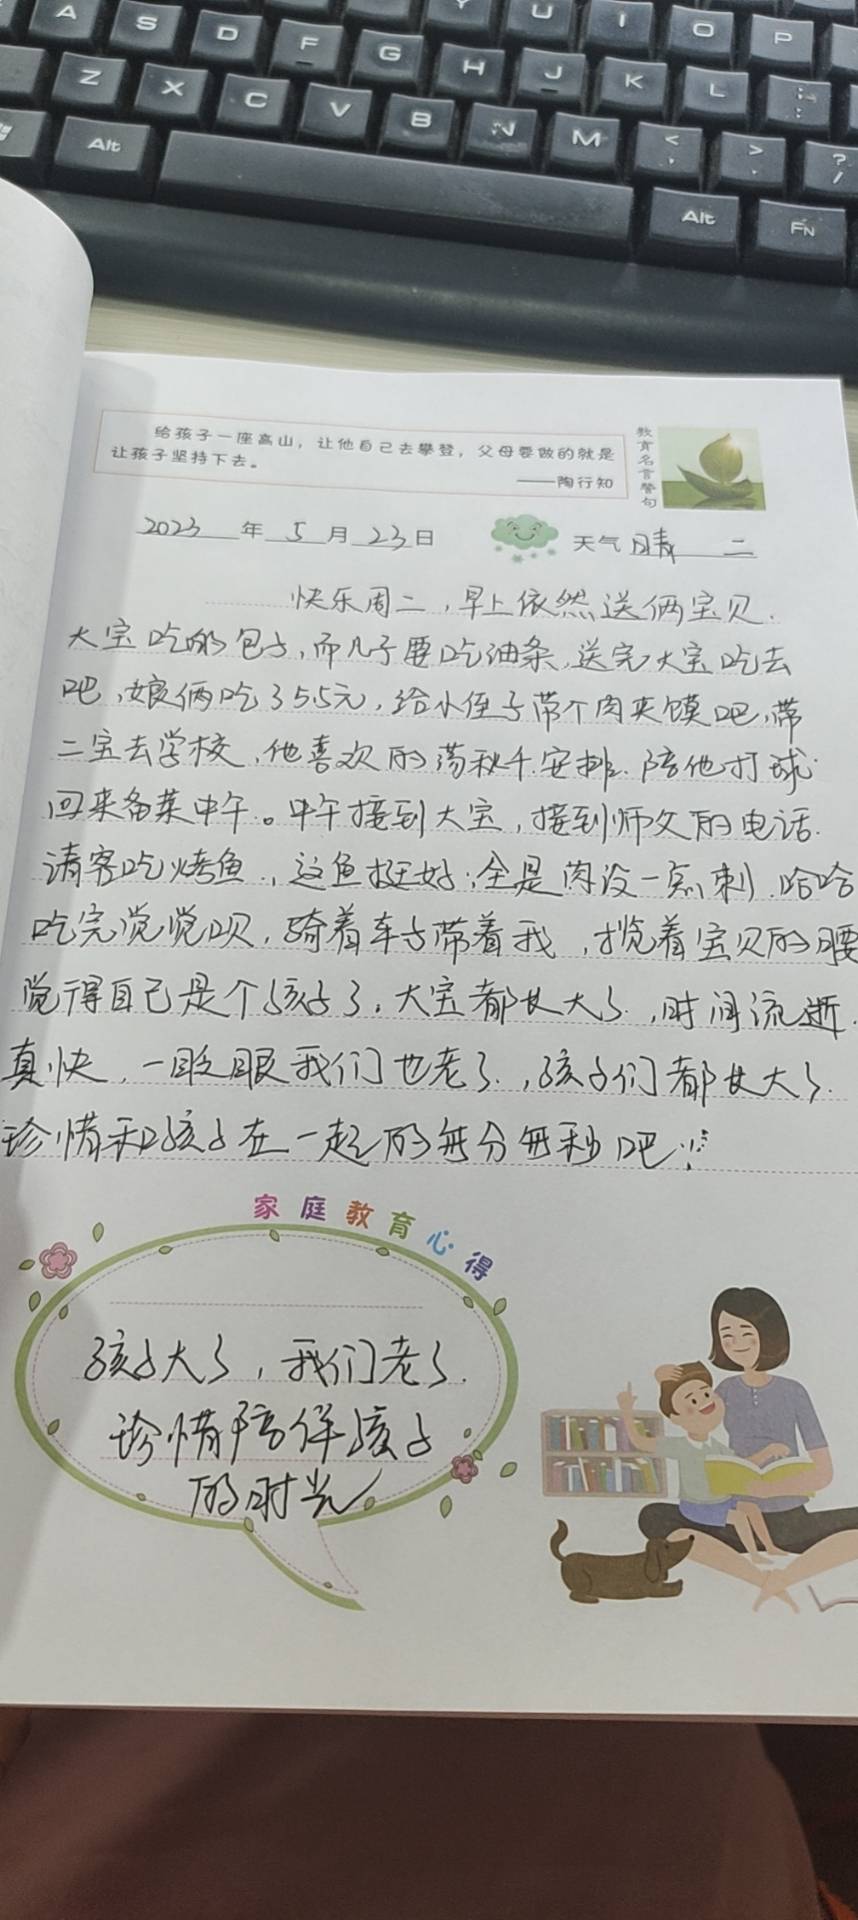 A S D F G H J K L
Y U I O P
Z X C V B N M < ,
> .
? /
: ;
Alt
Alt
FN
给孩子一座高山，让他自己去攀登，父母要做的就是
让孩子坚持下去。
——陶行知
教育名言警句
2023年5月23日 天气晴 二
快乐周二，早上依然送俩宝贝.
大宝吃的包子，而儿子要吃油条，送完大宝吃去
吧，娘俩吃了5.5元，给小侄子带个肉夹馍吧，带
二宝去学校，他喜欢的荡秋千.安排.陪他打球
回来备菜中午。中午接到大宝，接到师父的电话.
请客吃烤鱼.，这鱼挺好；全是肉没一点刺.哈哈
吃完觉觉呗，骑着车子带着我，揽着宝贝的腰
觉得自己是个孩子了，大宝都长大了.，时间流逝.
真快，一眨眼我们也老了.，孩子们都长大了.
珍惜和孩子在一起的每分每秒吧!
家庭教育心得
孩子大了，我们老了.
珍惜陪伴孩子
的时光